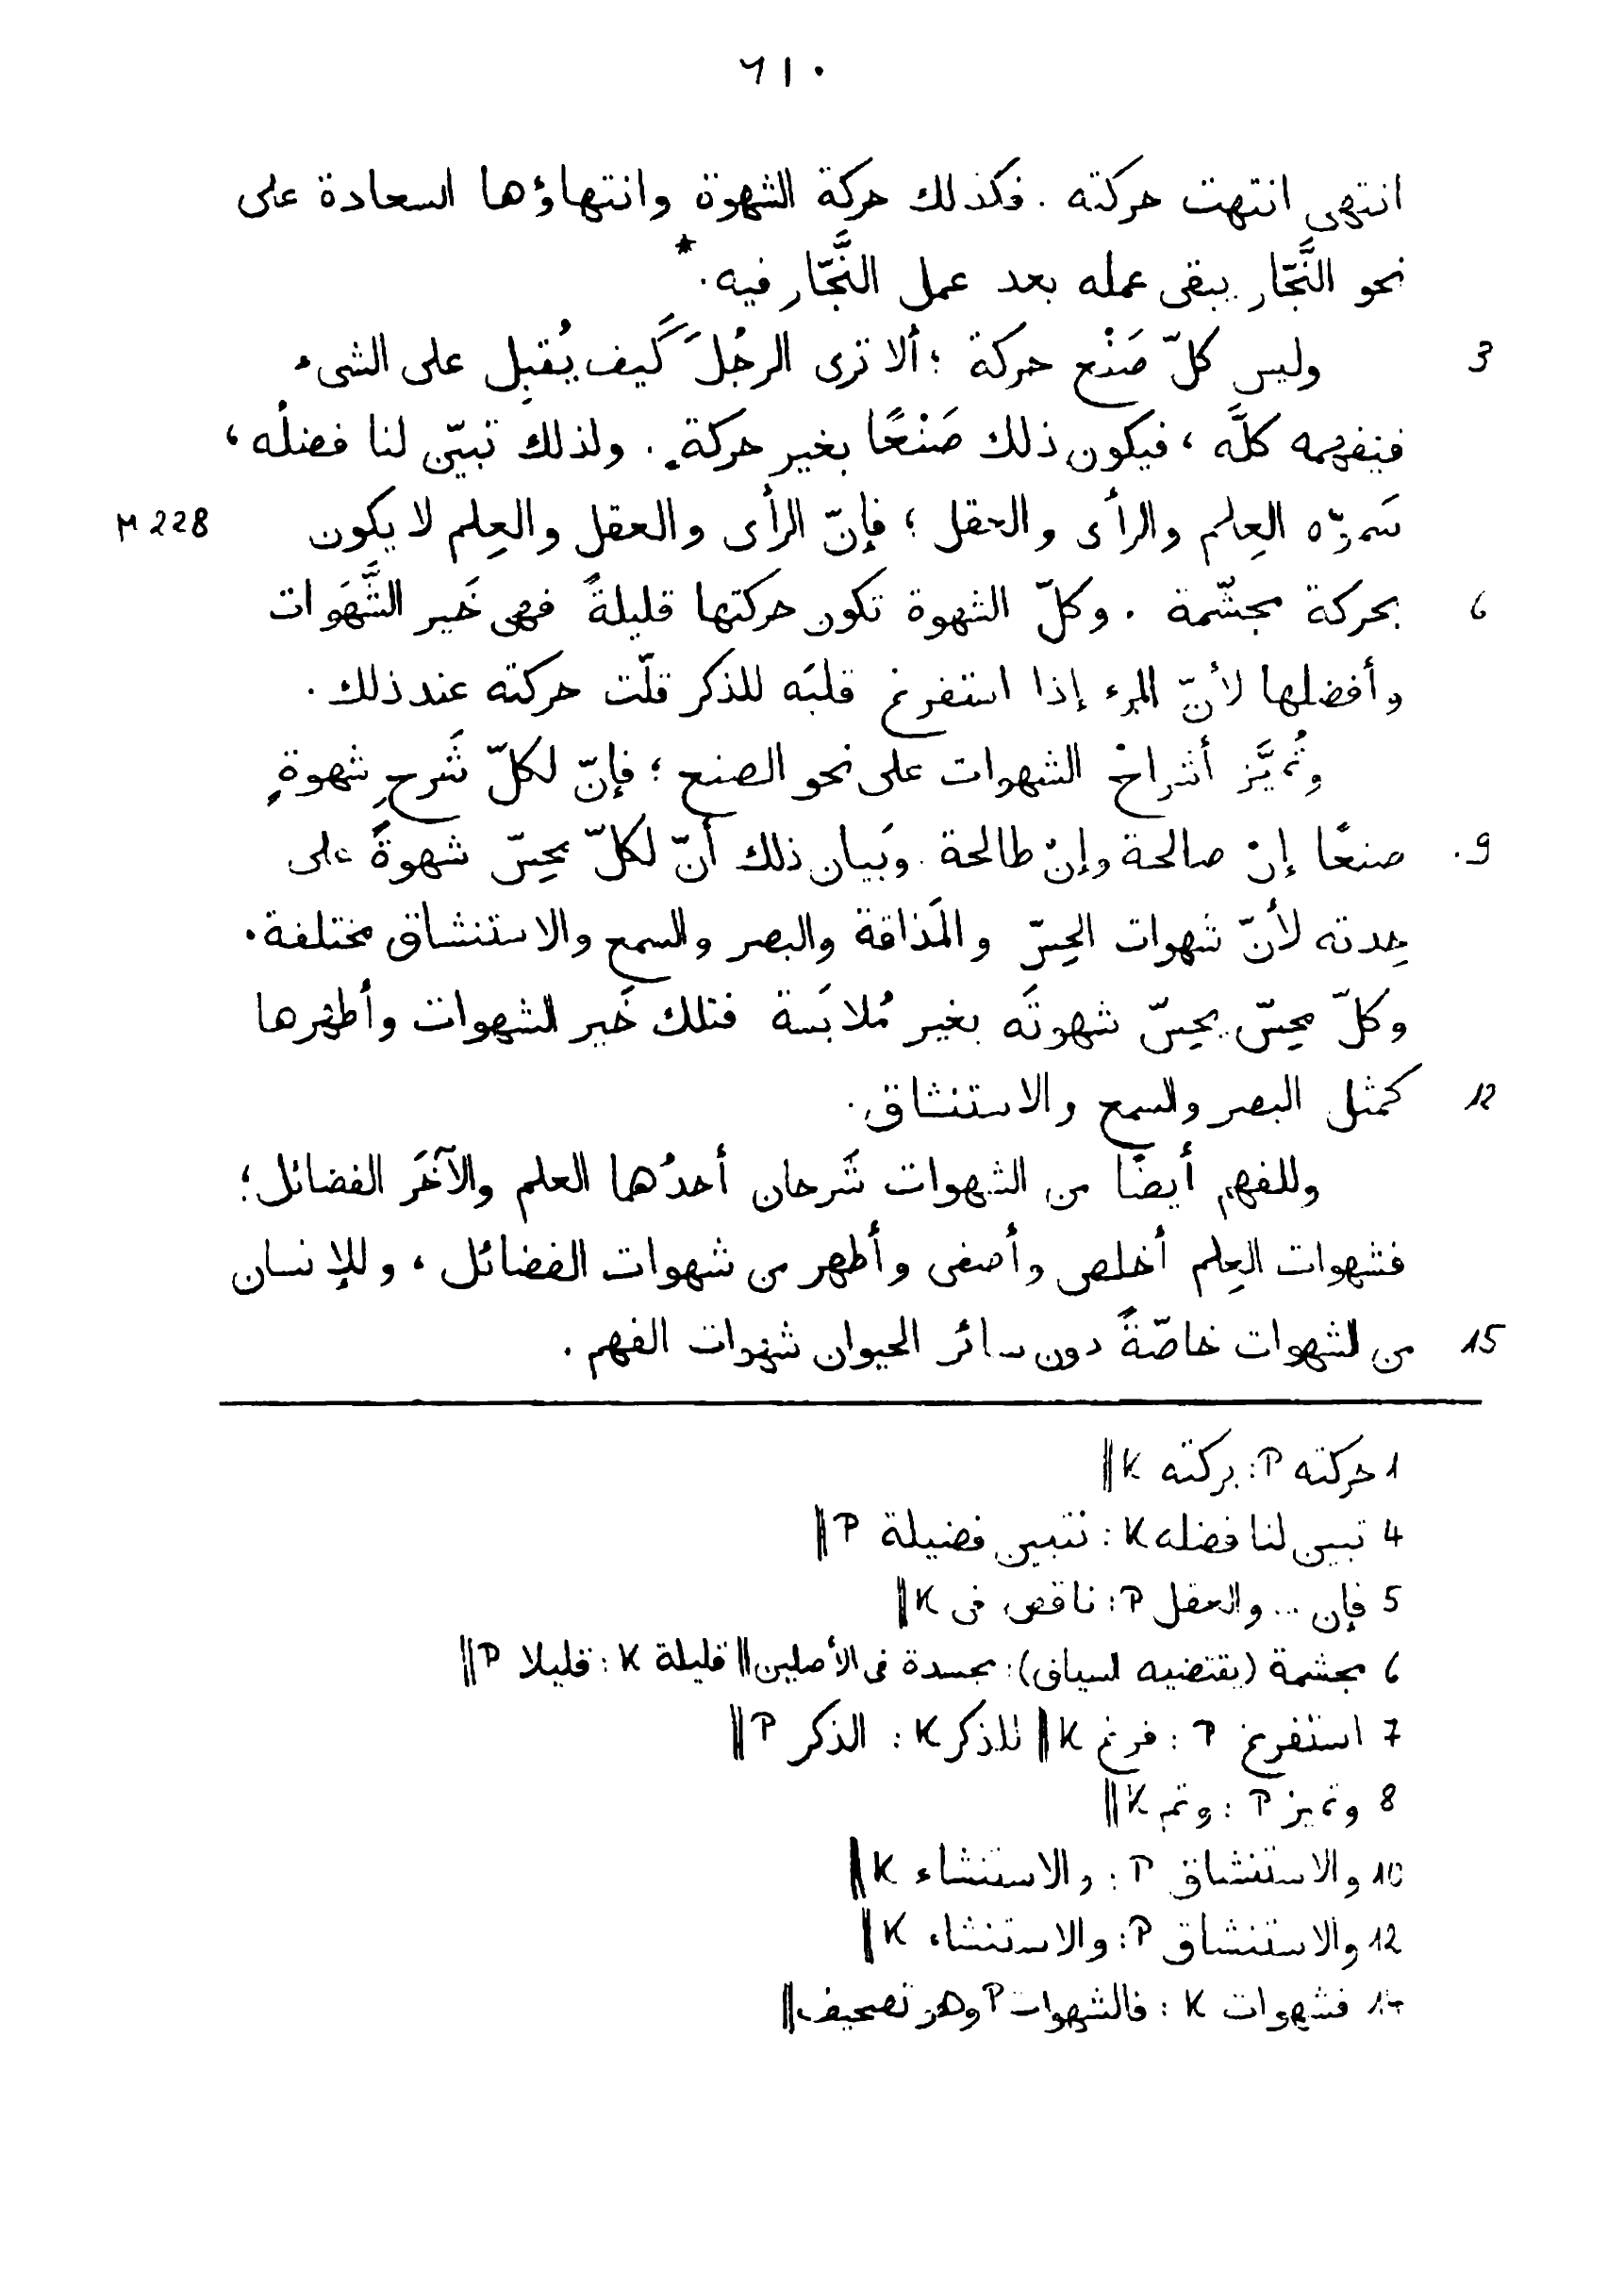 ٦١٠
انتهى انتهت حركته . فكذلك حركة الشهوة وانتهاؤها السعادة على
نحو النَّجّار يبقى عمله بعد عمل النَّجّار فيه.*
3 وليس كلّ صَنْع حركة ؛ ألا ترى الرجُلَ كَيف يُقبِل على الشىء
فيفهمه كلَّه ، فيكون ذلك صَنْعًا بغير حركةٍ . ولذلك تبيّن لنا فضلُه ،
العِلم والرأى والعقل ؛ فإنّ الرأى والعقل والعِلم لا يكون M 228
6 بحركة مجشّمة . وكلّ الشهوة تكون حركتها قليلةً فهى خَير الشَّهَوات
وأفضلها لأنّ المرء إذا استفرغ قلبَه للذكر قلّت حركته عند ذلك .
وتُميَّز أشراحُ الشهوات على نحو الصنع ؛ فإنّ لكلّ شَرحِ شهوةٍ
9. صنعًا إنْ صالحة وإنْ طالحة . وبَيان ذلك أنّ لكلّ مِحِسّ شهوةً على
حِدته لأنّ شهوات الحِسّ والمَذاقة والبصر والسمع والاستنشاق مختلفة .
وكلّ مِحِسّ يحِسّ شهوتَه بغير مُلابَسة فتلك خَير الشهوات وأطهرها
12 كمثل البصر والسمع والاستنشاق .
وللفهم أيضًا من الشهوات شَرحان أحدُها العلم والآخَر الفضائل ؛
فشهوات العِلم أخلص وأصفى وأطهر من شهوات الفضائل ، وللإنسان
15 من الشهوات خاصّةً دون سائر الحيوان شهوات الفهم .
1 حركته P : بركته K ||
4 تبين لنا فضله K : نتبين فضيلة P ||
5 فإن ... والعقل P : ناقص فى K ||
6 مجشمة (يقتضيه السياق) : مجسدة فى الأصلين || قليلة K : قليلا P ||
7 استفرغ P : فرغ K || للذكر K : الذكر P ||
8 وتميز P : وتم K ||
10 والاستنشاق P : والاستنشاء K ||
12 والاستنشاق P : والاستنشاء K ||
14 فشهوات K : فالشهوات P وهو تصحيف ||